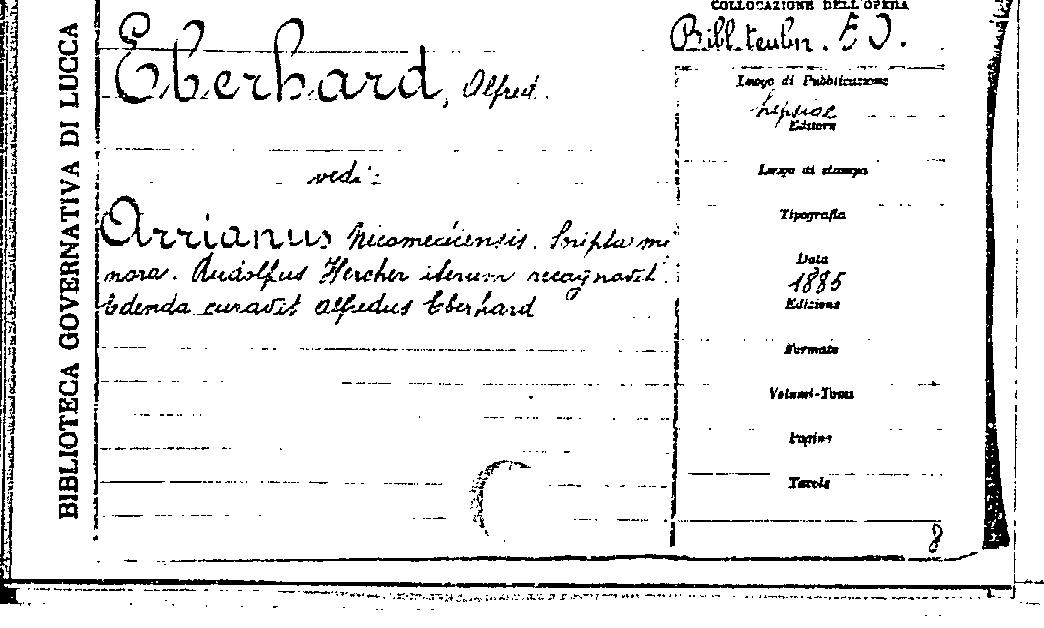 BIBLIOTECA GOVERNATIVA DI LUCCA
Eberhard, Alfred.
vedi:
Arrianus Nicomediensis. Scripta mi
nora. Rudolfus Hercher iterum recognovit.
Edenda curavit Alfredus Eberhard
COLLOCAZIONE DELL'OPERA
Bibl. teubn. 50.
Luogo di Pubblicazione
Lipsiae
Editore
Luogo di stampa
Tipografia
Data
1885
Edizione
Formato
Volumi-Tomi
Pagine
Tavole
8